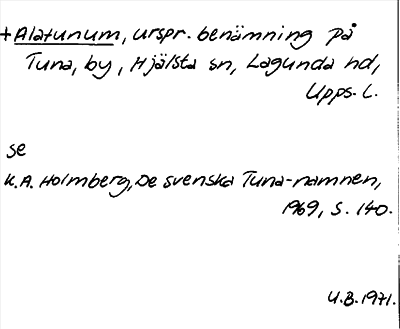 +Alatunum, urspr. benämning på
Tuna, by, Hjälsta sn, Lagunda hd,
Upps. l.
se
K.A. Holmberg, De svenska Tuna-namnen,
1969, s. 140.
U.B. 1971.